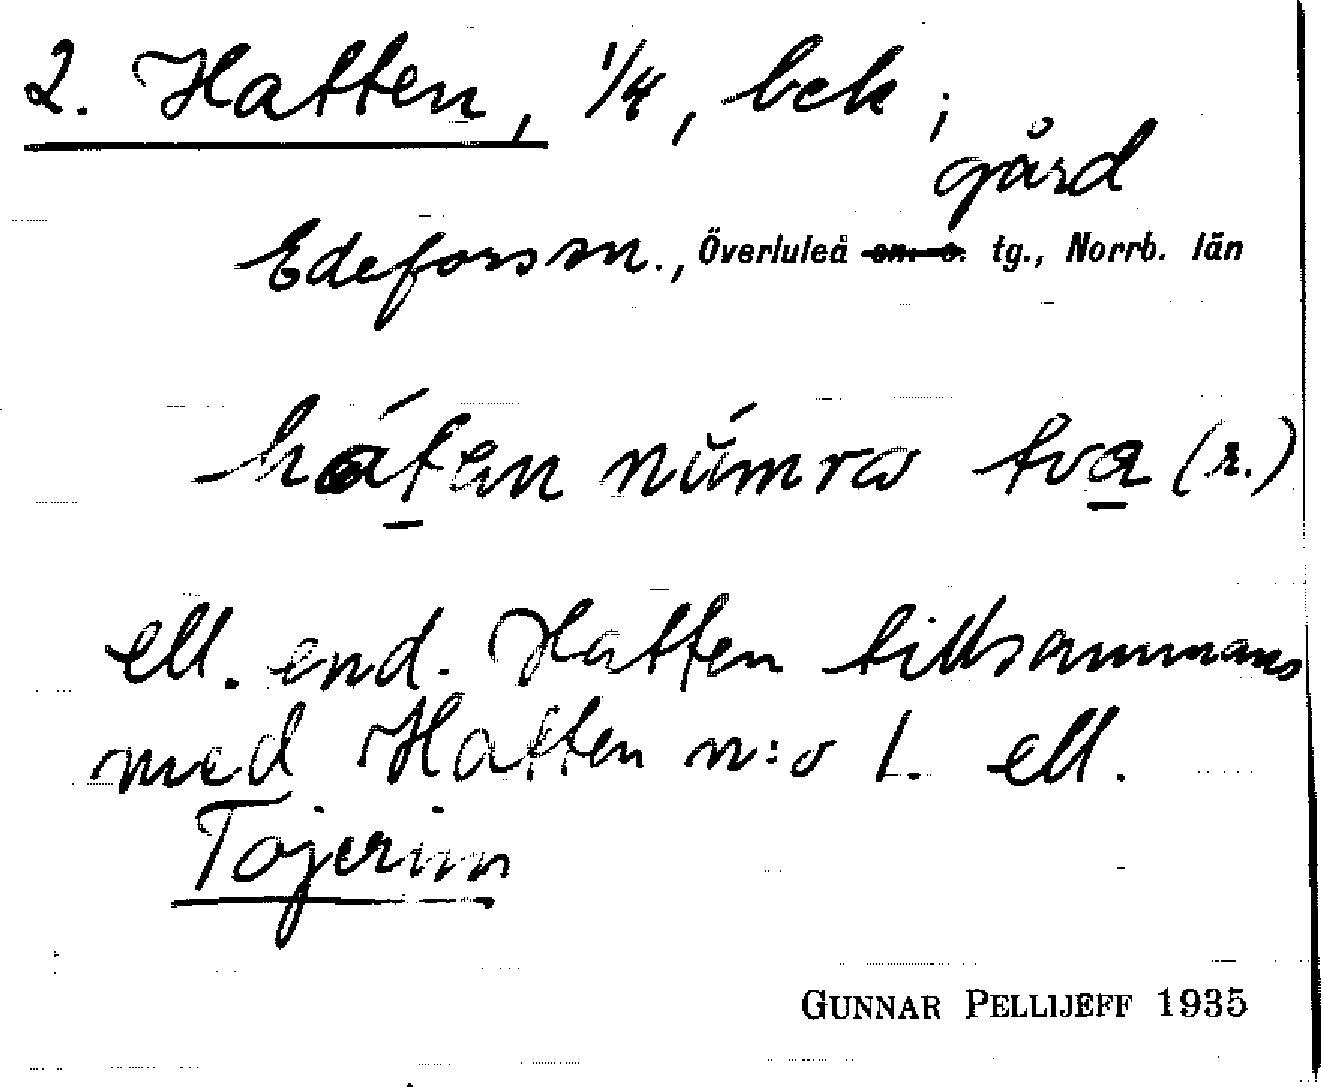 2. Hatten, 1/4, bek;
gård
Edefors sn., Överluleå sn. o. tg., Norrb. län
hátan númra två (r.)
ell. end. Hatten tillsammans
med Hatten n:o 1. ell.
Tojerim
GUNNAR PELLIJEFF 1935